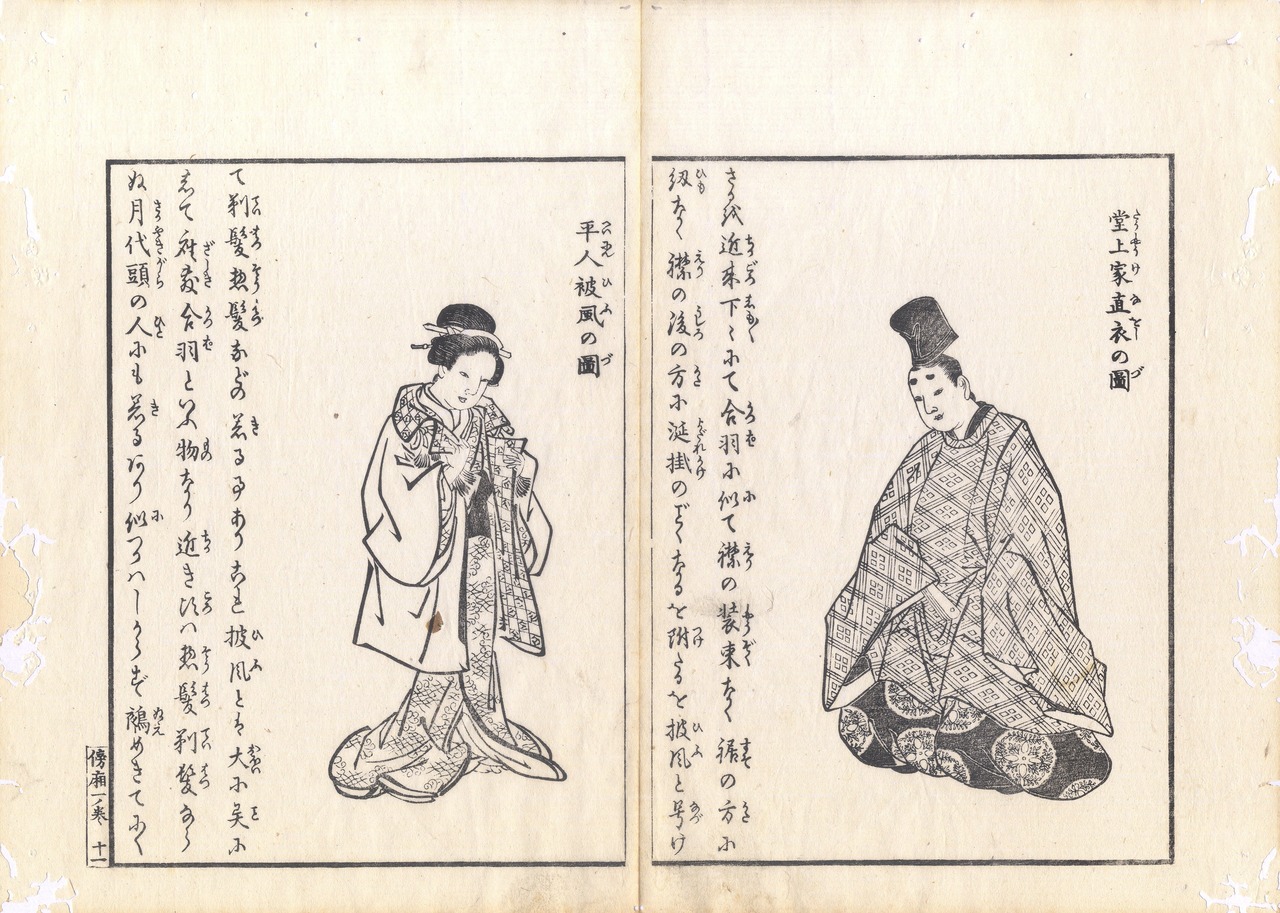 堂上家直衣の圖
さるを近来下々にて合羽に似て襟の装束なく裾の方に
紐なく襟の後の方に涎掛のごとくなるを附たるを披風と号け
平人被風の圖
て剃髪惣髪などの着る事ありこれ披風とは大に異に
して座敷合羽といふ物なり近き頃は惣髪剃髪なら
ぬ月代頭の人にも着るあり似つかはしからず鵺めきてにく
傍廂一ノ巻 十一